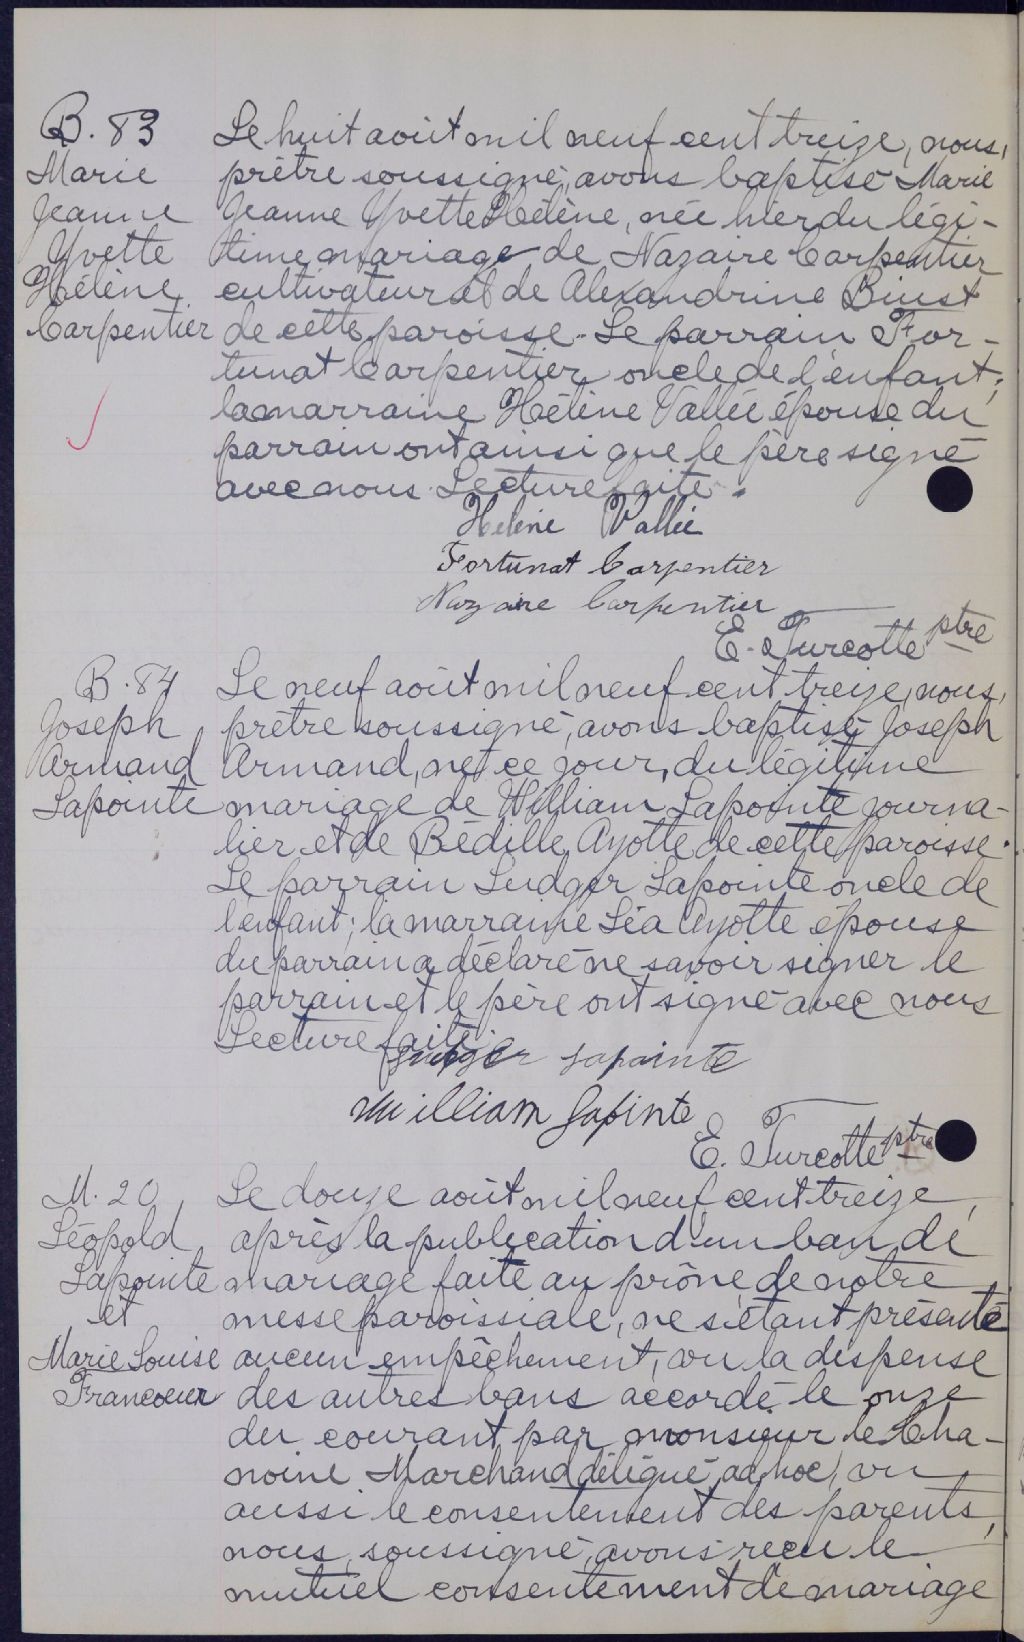 B. 83
Marie
Jeanne
Yvette
Hélène
Carpentier
Le huit août mil neuf cent treize, nous,
prêtre soussigné, avons baptisé Marie
Jeanne Yvette Hélène, née hier du légi-
time mariage de Nazaire Carpentier
cultivateur et de Alexandrine
de cette paroisse. Le parrain For-
tunat Carpentier oncle de l'enfant;
la marraine Hélène Vallée épouse du
parrain ont ainsi que le père signé
avec nous. Lecture faite.
Helène Vallée
Fortunat Carpentier
Nazaire Carpentier
E. Turcotte ptre
B. 84
Joseph
Armand
Lapointe
Le neuf août mil neuf cent treize, nous,
prêtre soussigné, avons baptisé Joseph
Armand, né ce jour, du légitime
mariage de William Lapointe journa-
lier et de Bédille Ayotte de cette paroisse.
Le parrain Ludger Lapointe oncle de
l'enfant; la marraine Léa Ayotte épouse
du parrain a déclaré ne savoir signer le
parrain et le père ont signé avec nous
Lecture faite.
Ludger Lapointe
William Lapinte
E. Turcotte ptre
M. 20
Léopold
Lapointe
et
Marie Louise
Francoeur
Le douze août mil neuf cent treize,
après la publication d'un ban de
mariage faite au prône de notre
messe paroissiale, ne s'étant présenté
aucun empêchement, vu la dispense
des autres bans accordé le onze
du courant par monsieur le Cha-
noine Marchand délégué ad hoc, vu
aussi le consentement des parents,
nous, soussigné, avons reçu le
mutuel consentement de mariage